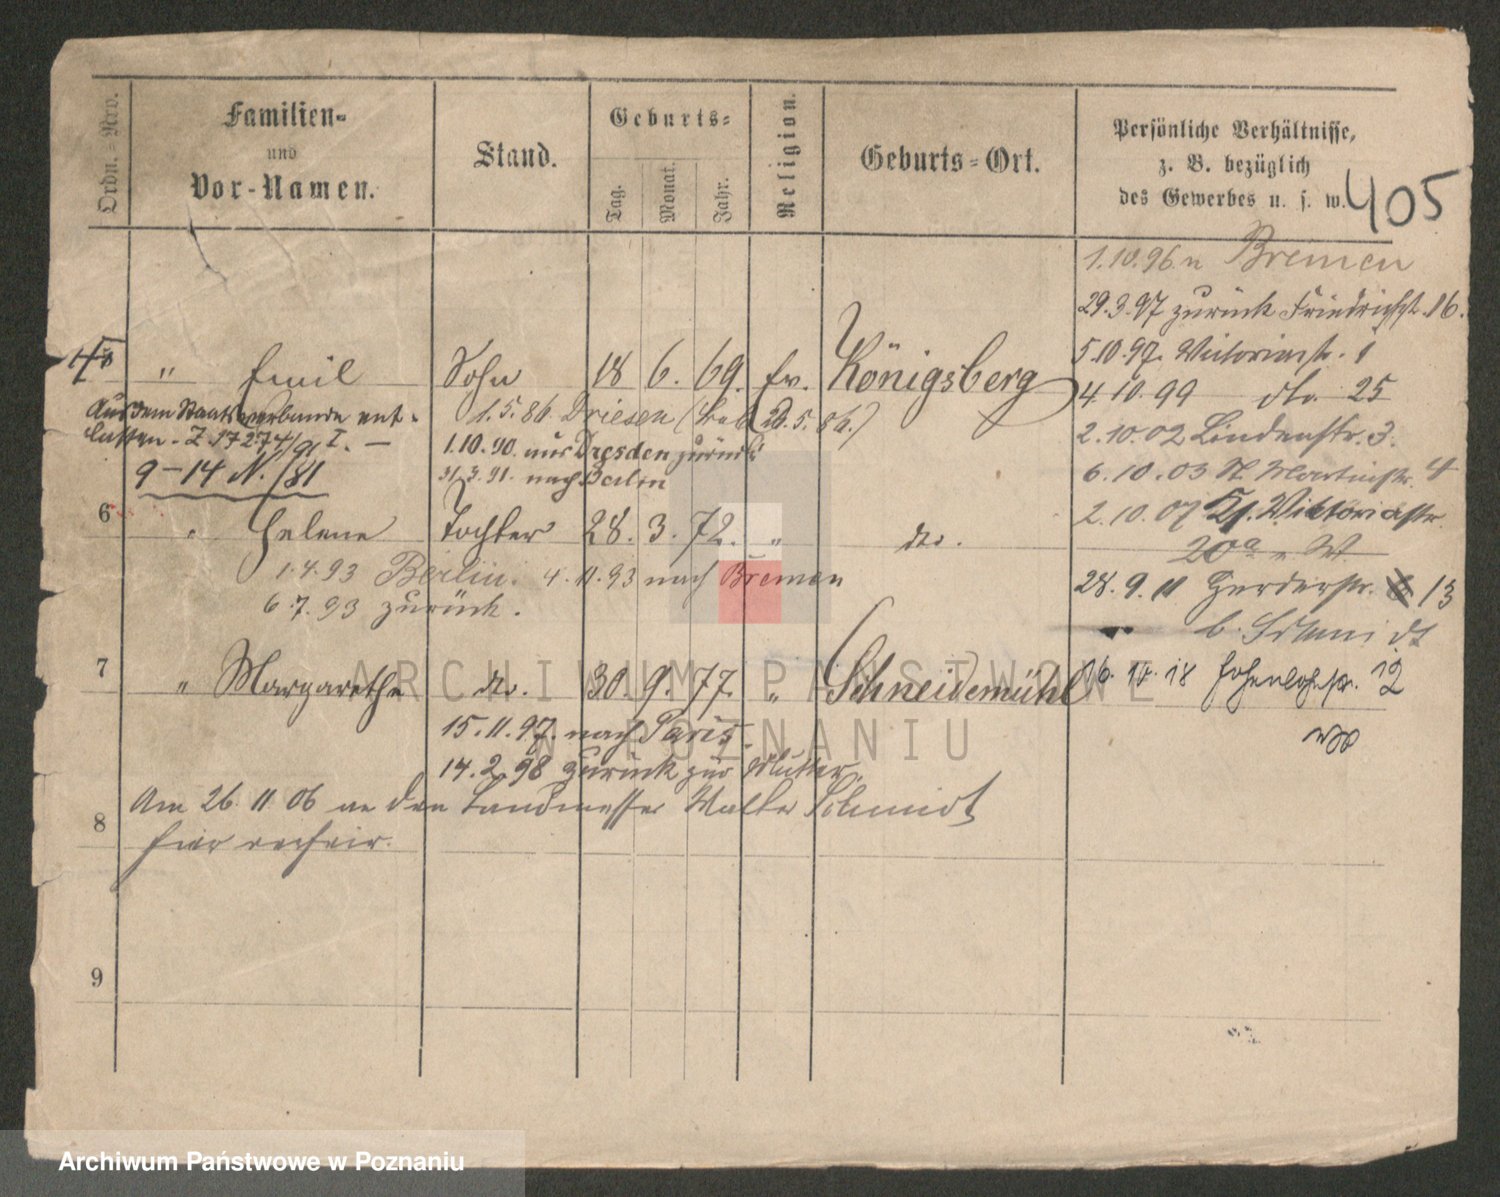 Ordn.-Nrv.
Familien-
und
Vor-Namen.
Stand.
Geburts-
Tag.
Monat.
Jahr.
Religion.
Geburts-Ort.
Persönliche Verhältnisse,
z. B. bezüglich
des Gewerbes u. s. w.
405
1.10.96 n Bremen
29.3.97 zurück Friedrichst. 16.
5.10.97. Victoriastr. 1
4.10.99 do. 25
2.10.02 Lindenstr. 3.
6.10.03 St. Martinstr. 4
2.10.07 Kl. Viktoriastr.
20a
28.9.11 Herderstr. 13
b. Schmidt
16.10.18 Hohenlohestr. 12
" Emil Sohn 18 6. 69. ev. Königsberg
Aus dem Staatsverbande ent-
lassen. Z. 17274/91 I. —
9-14 N./81
1.5.86 Driesen
1.10.90. aus Dresden zurück
31.3.91. nach Berlin
6 " Helene Tochter 28. 3. 72. " do.
1.4.93 Berlin. 4.11.93 nach Bremen
6.7.93 zurück.
7 " Margarethe do. 30. 9. 77. " Schneidemühl
15.11.97. nach Paris.
14.2.98 zurück zur Mutter.
8 Am 26.11.06 an den Landmesser Walter Schmidt
hier verheir.
9
ARCHIWUM PAŃSTWOWE
W POZNANIU
Archiwum Państwowe w Poznaniu